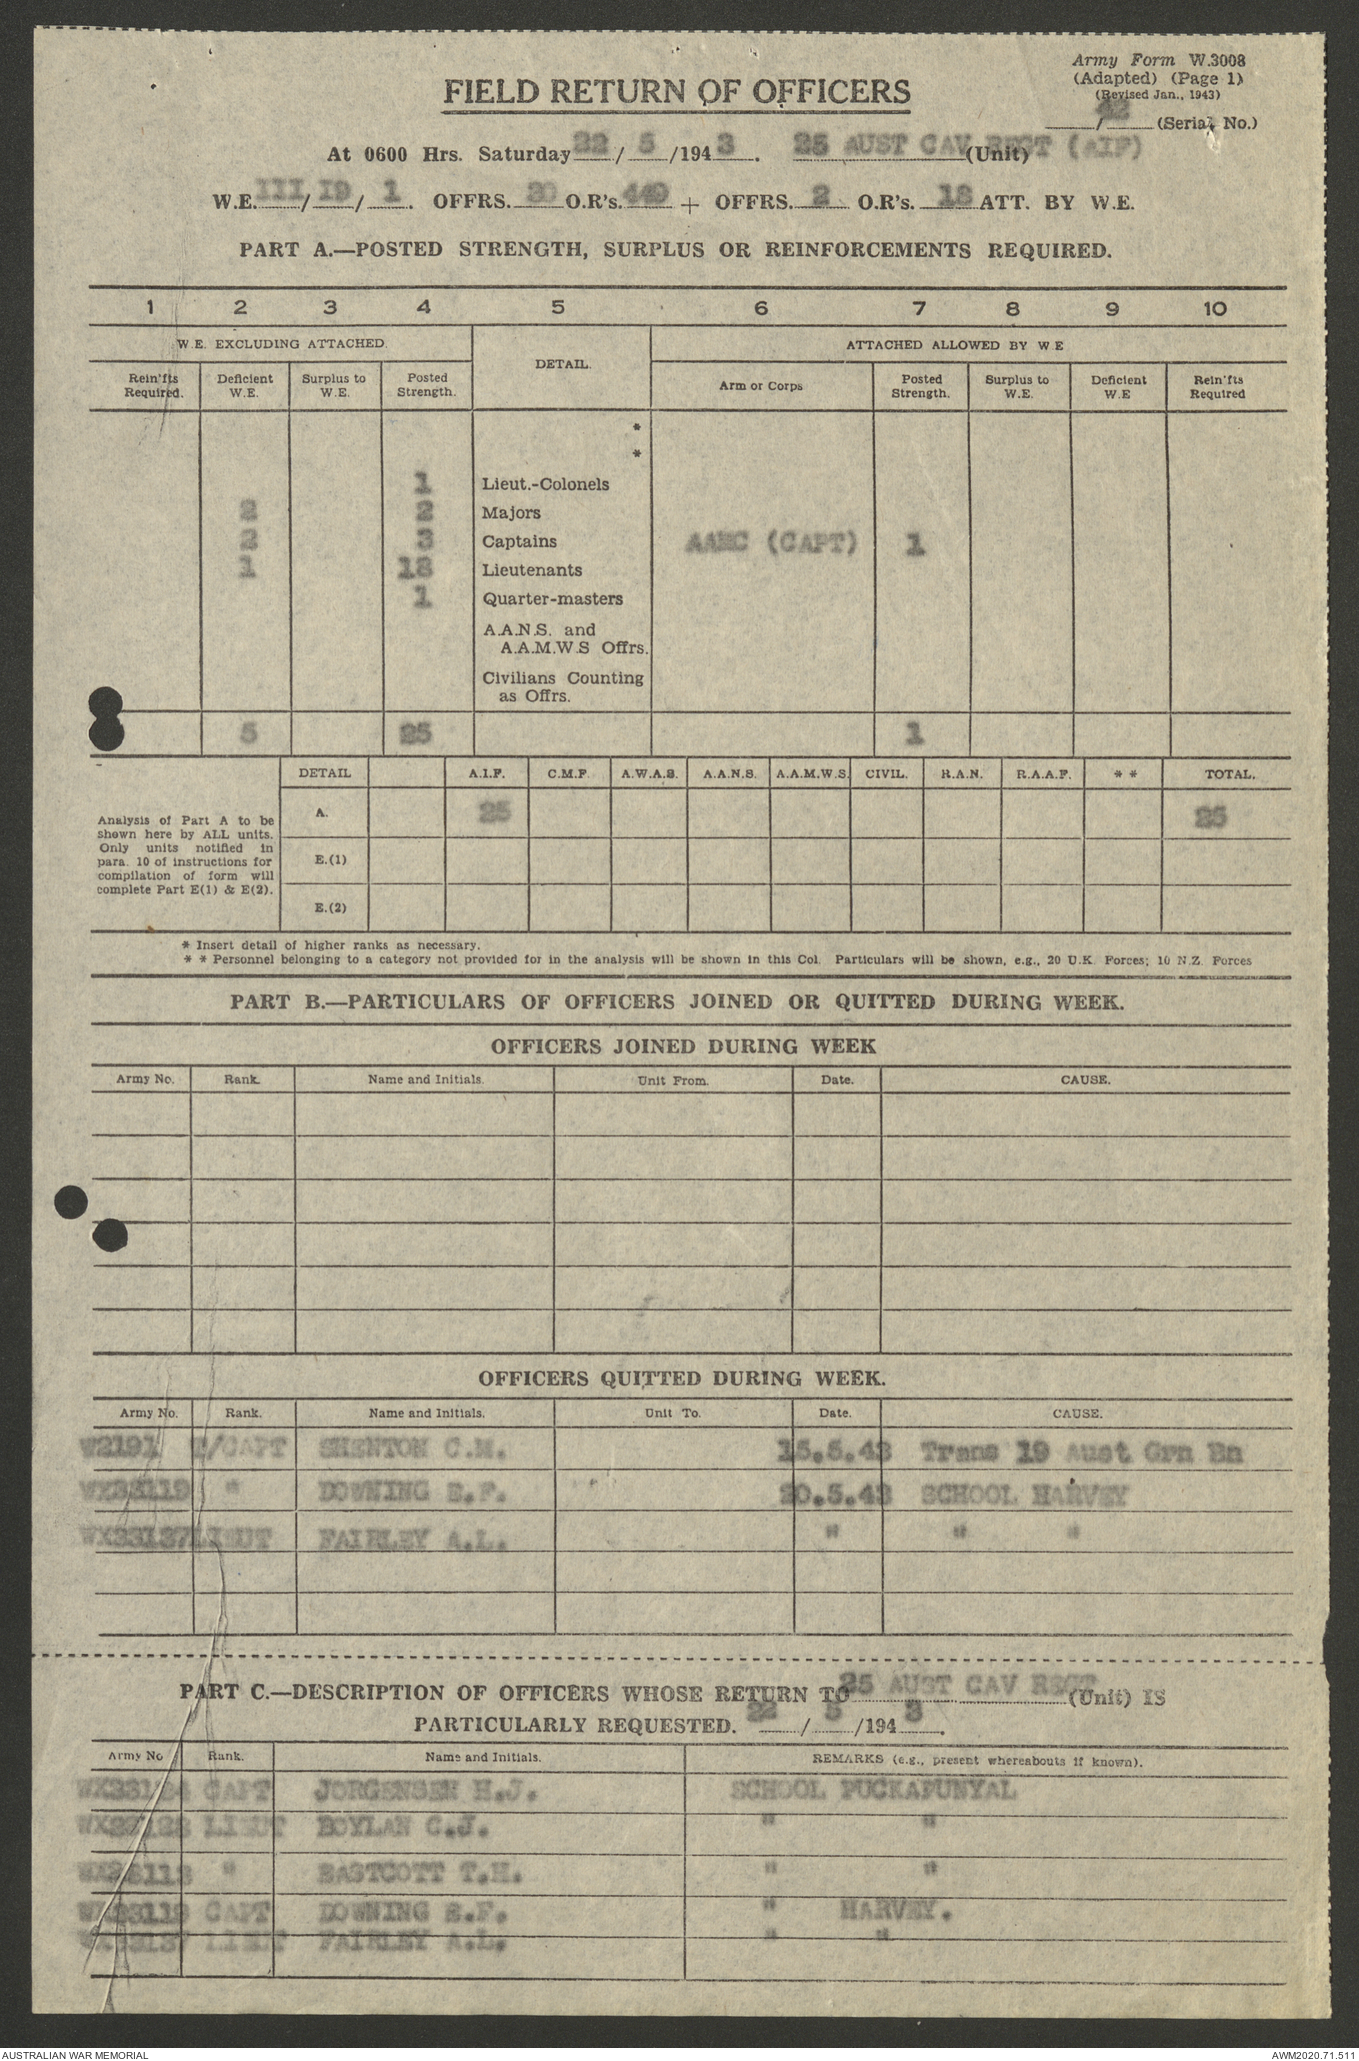 Army Form W.3008
(Adapted) (Page 1)
(Revised Jan., 1943)
FIELD RETURN OF OFFICERS
/ 42 (Serial No.)
At 0600 Hrs. Saturday 22 / 5 /1943. 25 AUST CAV REGT (AIF) (Unit)
W.E. III / 19 / 1. OFFRS. 30 O.R's. 449 + OFFRS. 2 O.R's. 18 ATT. BY W.E.
PART A.—POSTED STRENGTH, SURPLUS OR REINFORCEMENTS REQUIRED.
1 2 3 4 5 6 7 8 9 10
W.E. EXCLUDING ATTACHED. DETAIL. ATTACHED ALLOWED BY W E
Rein'fts Required. Deficient W.E. Surplus to W.E. Posted Strength. Arm or Corps Posted Strength. Surplus to W.E. Deficient W.E Rein'fts Required
*
*
1 Lieut.-Colonels
2 2 Majors
2 3 Captains AAMC (CAPT) 1
1 18 Lieutenants
1 Quarter-masters
A.A.N.S. and
A.A.M.W.S Offrs.
Civilians Counting
as Offrs.
5 25 1
DETAIL A.I.F. C.M.F. A.W.A.S. A.A.N.S. A.A.M.W.S. CIVIL. R.A.N. R.A.A.F. * * TOTAL.
Analysis of Part A to be
shown here by ALL units.
Only units notified in
para. 10 of instructions for
compilation of form will
complete Part E(1) & E(2).
A. 25 25
E.(1)
E.(2)
* Insert detail of higher ranks as necessary.
* * Personnel belonging to a category not provided for in the analysis will be shown in this Col. Particulars will be shown, e.g., 20 U.K. Forces; 10 N.Z. Forces
PART B.—PARTICULARS OF OFFICERS JOINED OR QUITTED DURING WEEK.
OFFICERS JOINED DURING WEEK
Army No. Rank. Name and Initials. Unit From. Date. CAUSE.
OFFICERS QUITTED DURING WEEK.
Army No. Rank. Name and Initials. Unit To. Date. CAUSE.
W2191 T/CAPT SHENTON C.M. 15.5.43 Trans 19 Aust Grn Bn
WX33119 " DOWNING E.F. 20.5.43 SCHOOL HARVEY
WX33137 LIEUT FAIRLEY A.L. " " "
PART C.—DESCRIPTION OF OFFICERS WHOSE RETURN TO 25 AUST CAV REGT (Unit) IS
PARTICULARLY REQUESTED. 22 / 5 /1943.
Army No Rank. Name and Initials. REMARKS (e.g., present whereabouts if known).
CAPT JORGENSEN H.J. SCHOOL PUCKAPUNYAL
LIEUT BOYLAN C.J. " "
" EASTCOTT T.H. " "
WX33119 CAPT DOWNING E.F. " HARVEY.
WX33137 LIEUT FAIRLEY A.L. " "
AUSTRALIAN WAR MEMORIAL
AWM2020.71.511